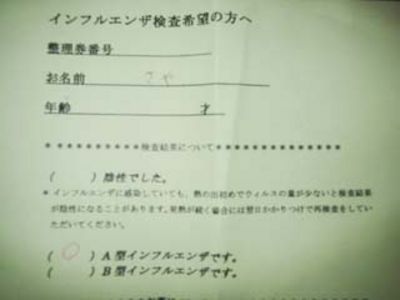 インフルエンザ検査希望の方へ
整理券番号
お名前 さや
年齢 才
検査結果について
( ) 陰性でした。
* インフルエンザに感染していても、熱の出初めでウィルスの量が少ないと検査結果
が陰性になることがあります。発熱が続く場合には翌日かかりつけで再検査をしてい
ただいてください。
(○) A型インフルエンザです。
( ) B型インフルエンザです。